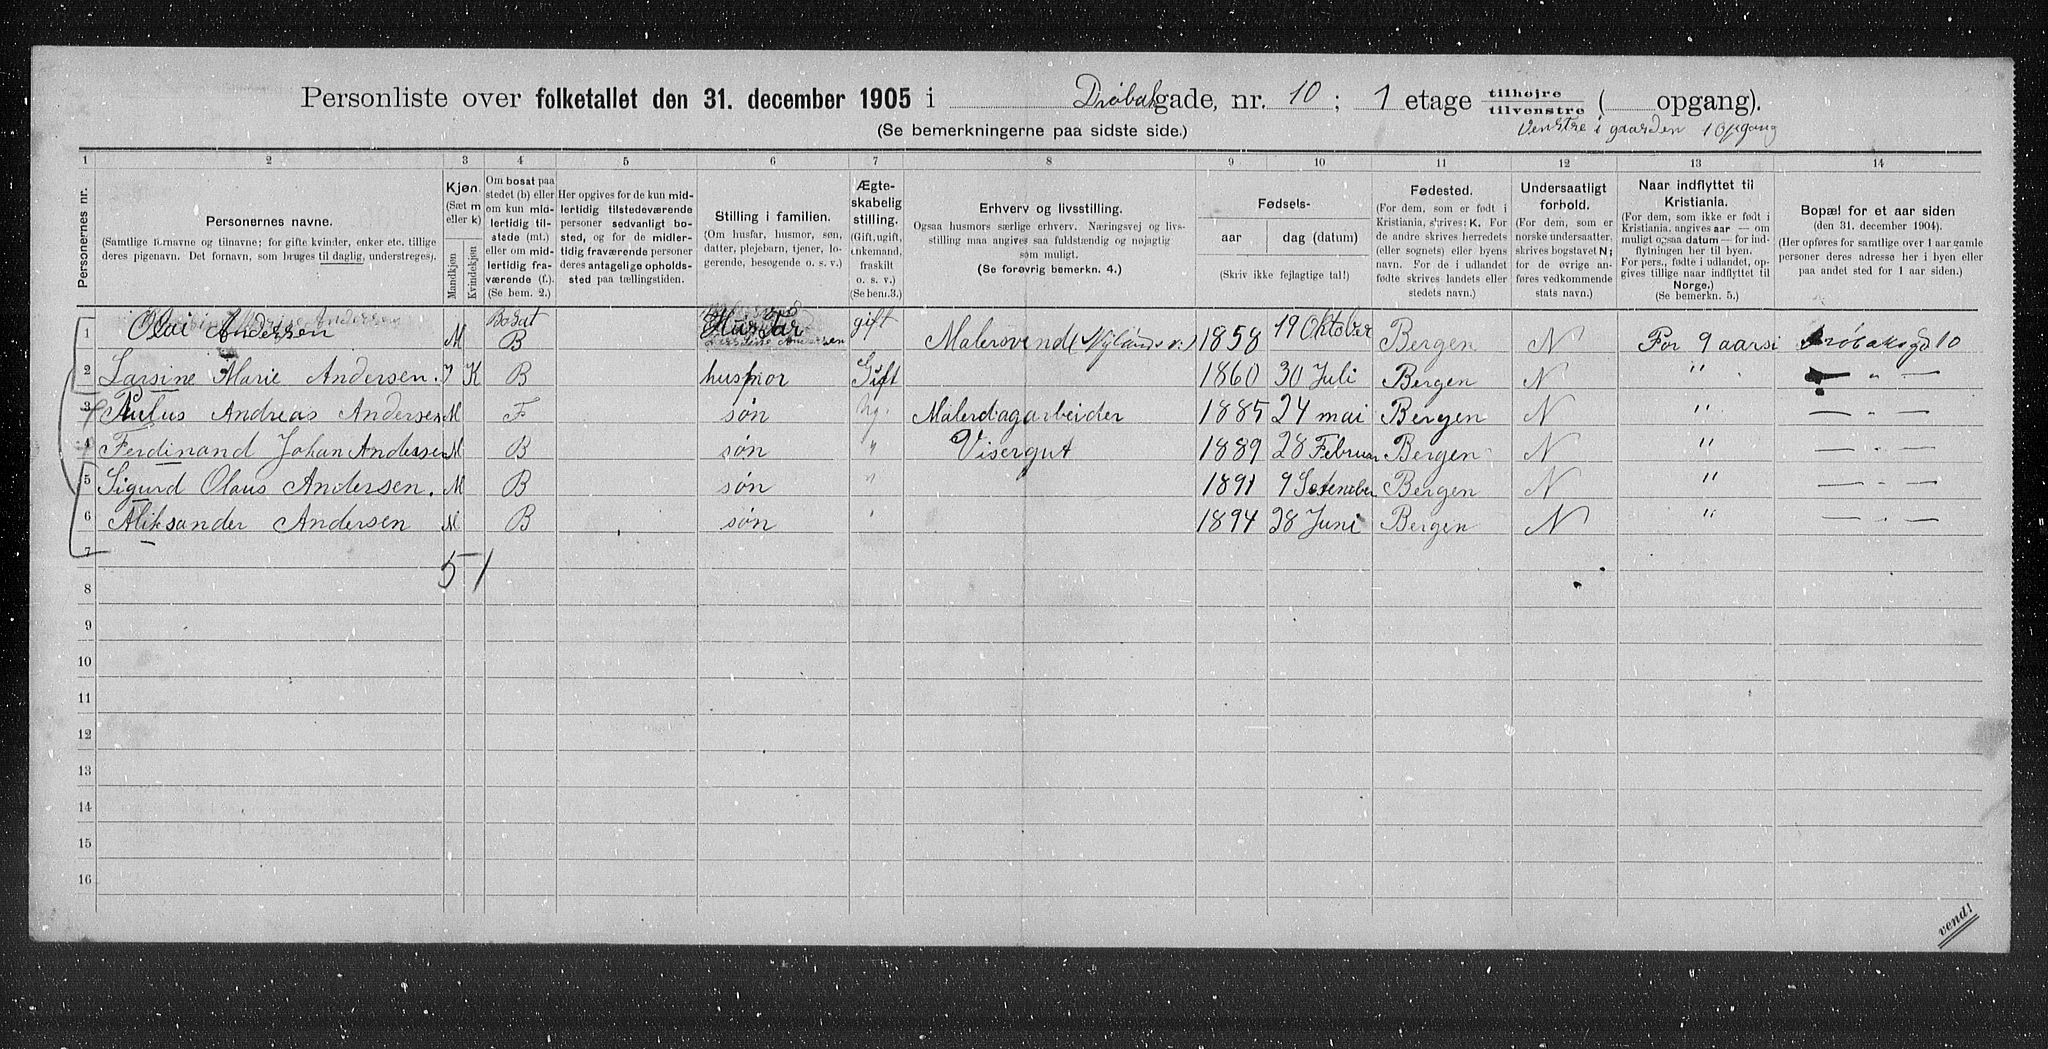 Personliste over folketallet den 31. december 1905 i Drøbakgade, nr. 10; 1 etage tilhøjre tilvenstre ( opgang).
(Se bemerkningerne paa sidste side.)
Venstre i gaarden 1 Opgang
1 2 3 4 5 6 7 8 9 10 11 12 13 14
Personernes nr.
Personernes navne.
(Samtlige fornavne og tilnavne; for gifte kvinder, enker etc. tillige deres pigenavn. Det fornavn, som bruges til daglig, understreges).
Kjøn.
(Sæt m eller k)
Mandkjøn
Kvindekjøn
Om bosat paa stedet (b) eller om kun midlertidig tilstede (mt.) eller om midlertidig fraværende (f.).
(Se bem. 2.)
Her opgives for de kun midlertidig tilstedeværende personer sedvanligt bosted, og for de midlertidig fraværende personer deres antagelige opholdssted paa tællingstiden.
Stilling i familien.
(Om husfar, husmor, søn, datter, plejebarn, tjener, logerende, besøgende o. s. v.)
Ægteskabelig stilling.
(Gift, ugift, enkemand, fraskilt o. s. v.)
(Se bem.3.)
Erhverv og livsstilling.
Ogsaa husmors særlige erhverv. Næringsvej og livsstilling maa angives saa fuldstændig og nøjagtig som muligt.
(Se forøvrig bemerkn. 4.)
Fødsels-
aar
dag (datum)
(Skriv ikke fejlagtige tal!)
Fødested.
(For dem, som er født i Kristiania, skrives: K. For de andre skrives herredets (eller sognets) eller byens navn. For de i udlandet fødte skrives landets eller stedets navn.)
Undersaatligt forhold.
(For dem, som er norske undersaatter, skrives bogstavet N; for de øvrige anføres vedkommende stats navn.)
Naar indflyttet til Kristiania.
(For dem, som ikke er født i Kristiania, angives aar — om muligt ogsaa datum — for indflytningen her til byen. For pers., fødte i udlandet, opgives tillige naar indflyttet til Norge.)
(Se bemerkn. 5.)
Bopæl for et aar siden
(den 31. december 1904).
(Her opføres for samtlige over 1 aar gamle personer deres adresse her i byen eller paa andet sted for 1 aar siden.)
1 Olai Andersen M Bosat B Husfar gift Malersvend (Nylands v.) 1858 19 Oktober Bergen N For 9 aarsi Drøbaksgd 10
2 Larsine Marie Andersen. K B husmor Gift 1860 30 Juli Bergen N " — " —
3 Julius Andreas Andersen M F søn Ug. Malerdagarbeider 1885 24 mai Bergen N " — " —
4 Ferdinand Johan Andersen M B søn " Visergut 1889 28 Februar Bergen N " — " —
5 Sigurd Olaus Andersen. M B søn " 1891 9 Setember Bergen N " — " —
6 Aliksander Andersen M B søn " 1894 28 Juni Bergen N " — " —
7
5 1
8
9
10
11
12
13
14
15
16
vend!